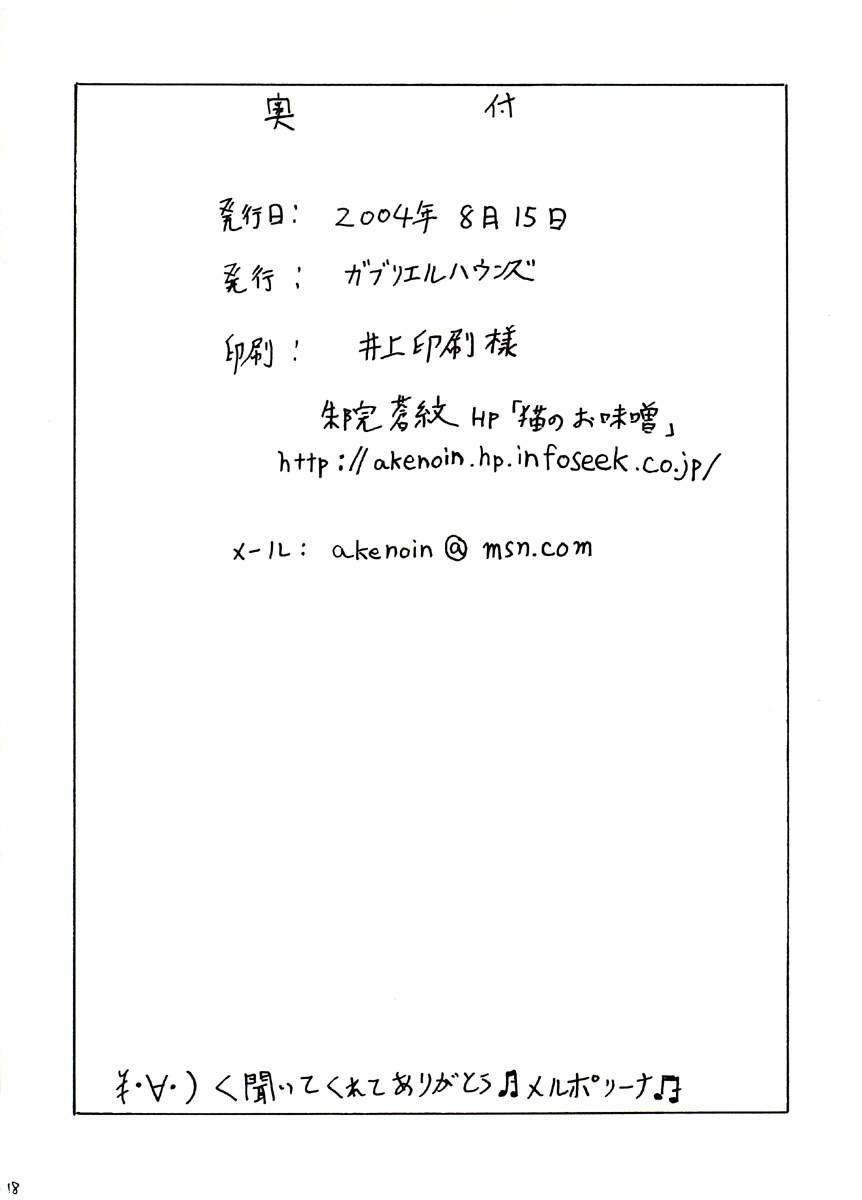 奥付
発行日: 2004年 8月15日
発行: ガブリエルハウンズ
印刷: 井上印刷様
朱院蒼紋 HP「猫のお味噌」
http://akenoin.hp.infoseek.co.jp/
メール: akenoin@msn.com
・∀・)<聞いてくれてありがとう♫メルポリーナ♫
18